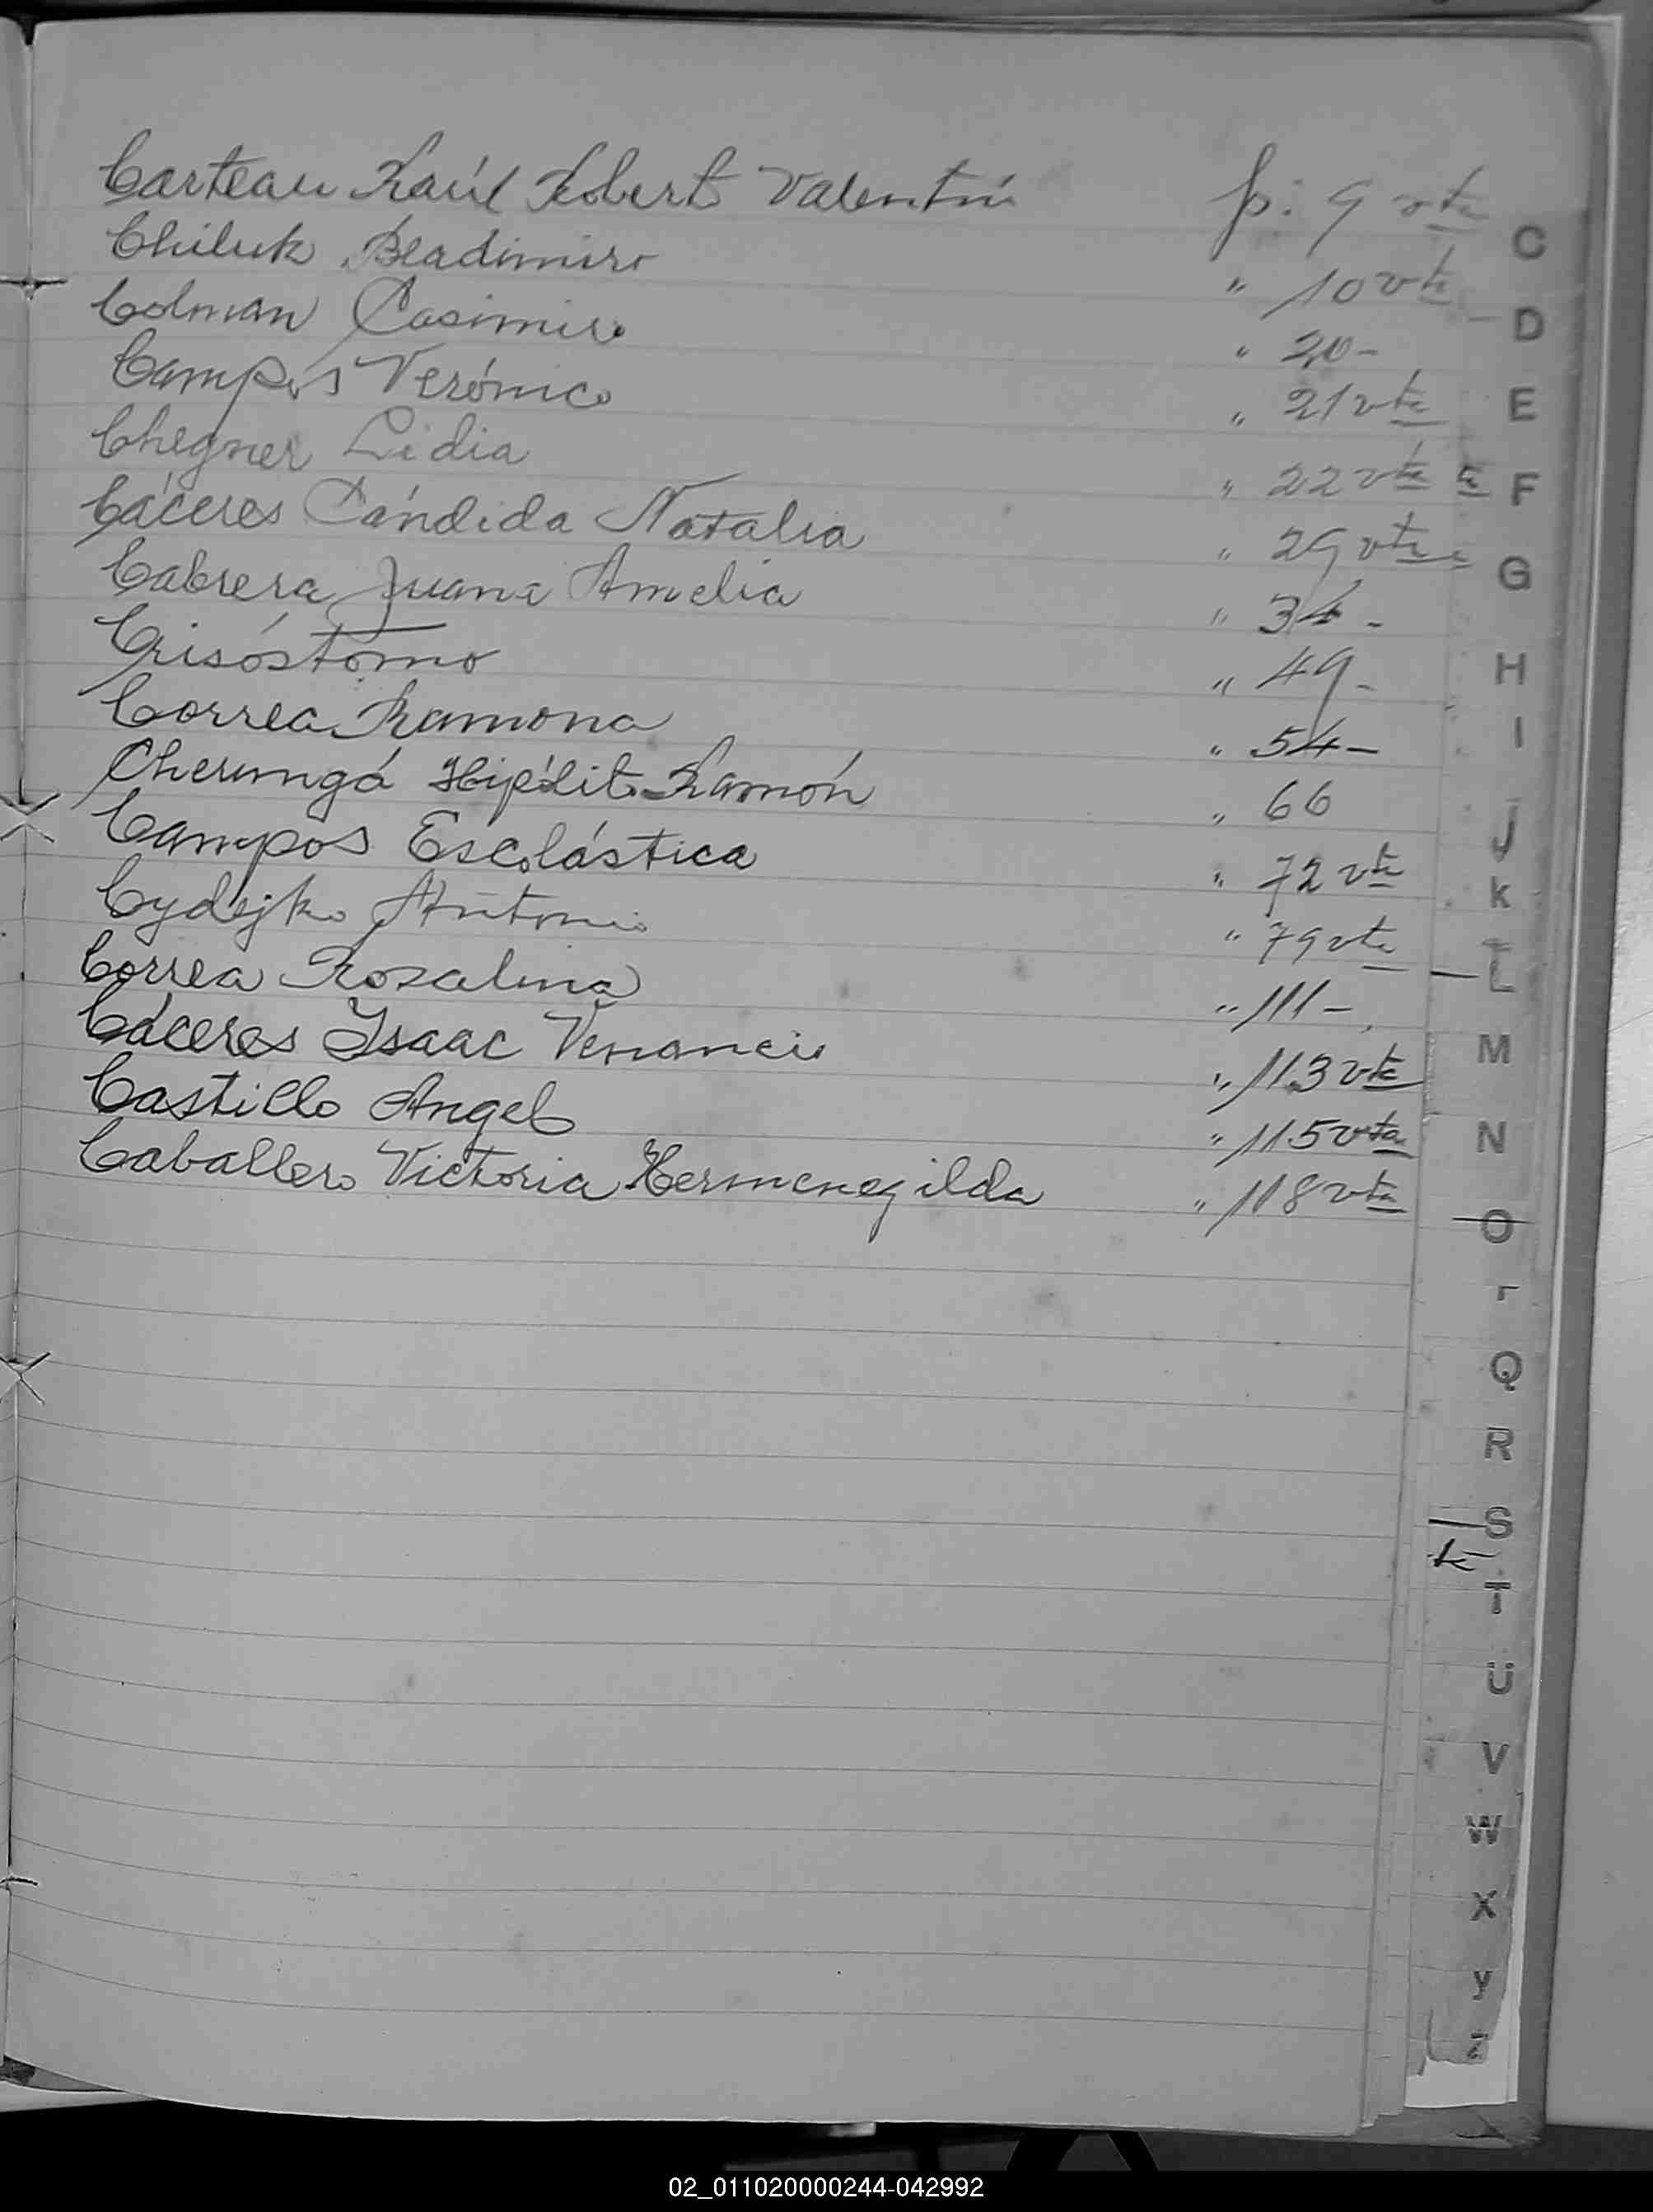 Carteau Raúl Roberto Valentín f: 9 vta
Chiluk Bladimiro " 10 vta
Colman Casimiro " 20-
Campos Verónico " 21 vta
Chegner Lidia " 22 vta
Cáceres Cándida Natalia " 29 vta
Cabrera Juana Amelia " 34-
Crisóstomo " 49-
Correa Ramona " 54-
Cherungá Hipólito Ramón " 66
Campos Escolástica " 72 vta
Cydejko Antonio " 79 vta
Correa Rosalina " 111-
Cáceres Isaac Venancio " 113 vta
Castillo Angel " 115 vta
Caballero Victoria Hermenegilda " 118 vta
C
D
E
F
G
H
I
J
K
L
M
N
O
Q
R
S
T
U
V
W
X
Y
Z
02_011020000244-042992